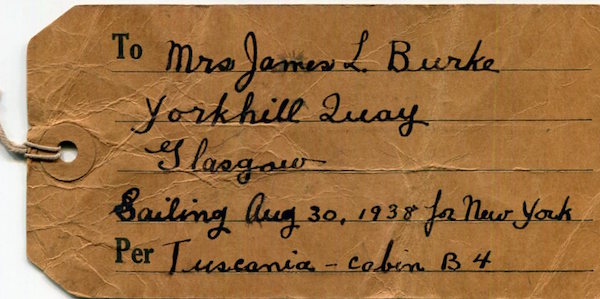 To Mrs James L. Burke
Yorkhill Quay
Glasgow
Sailing Aug 30, 1938 for New York
Per Tuscania - cabin B 4